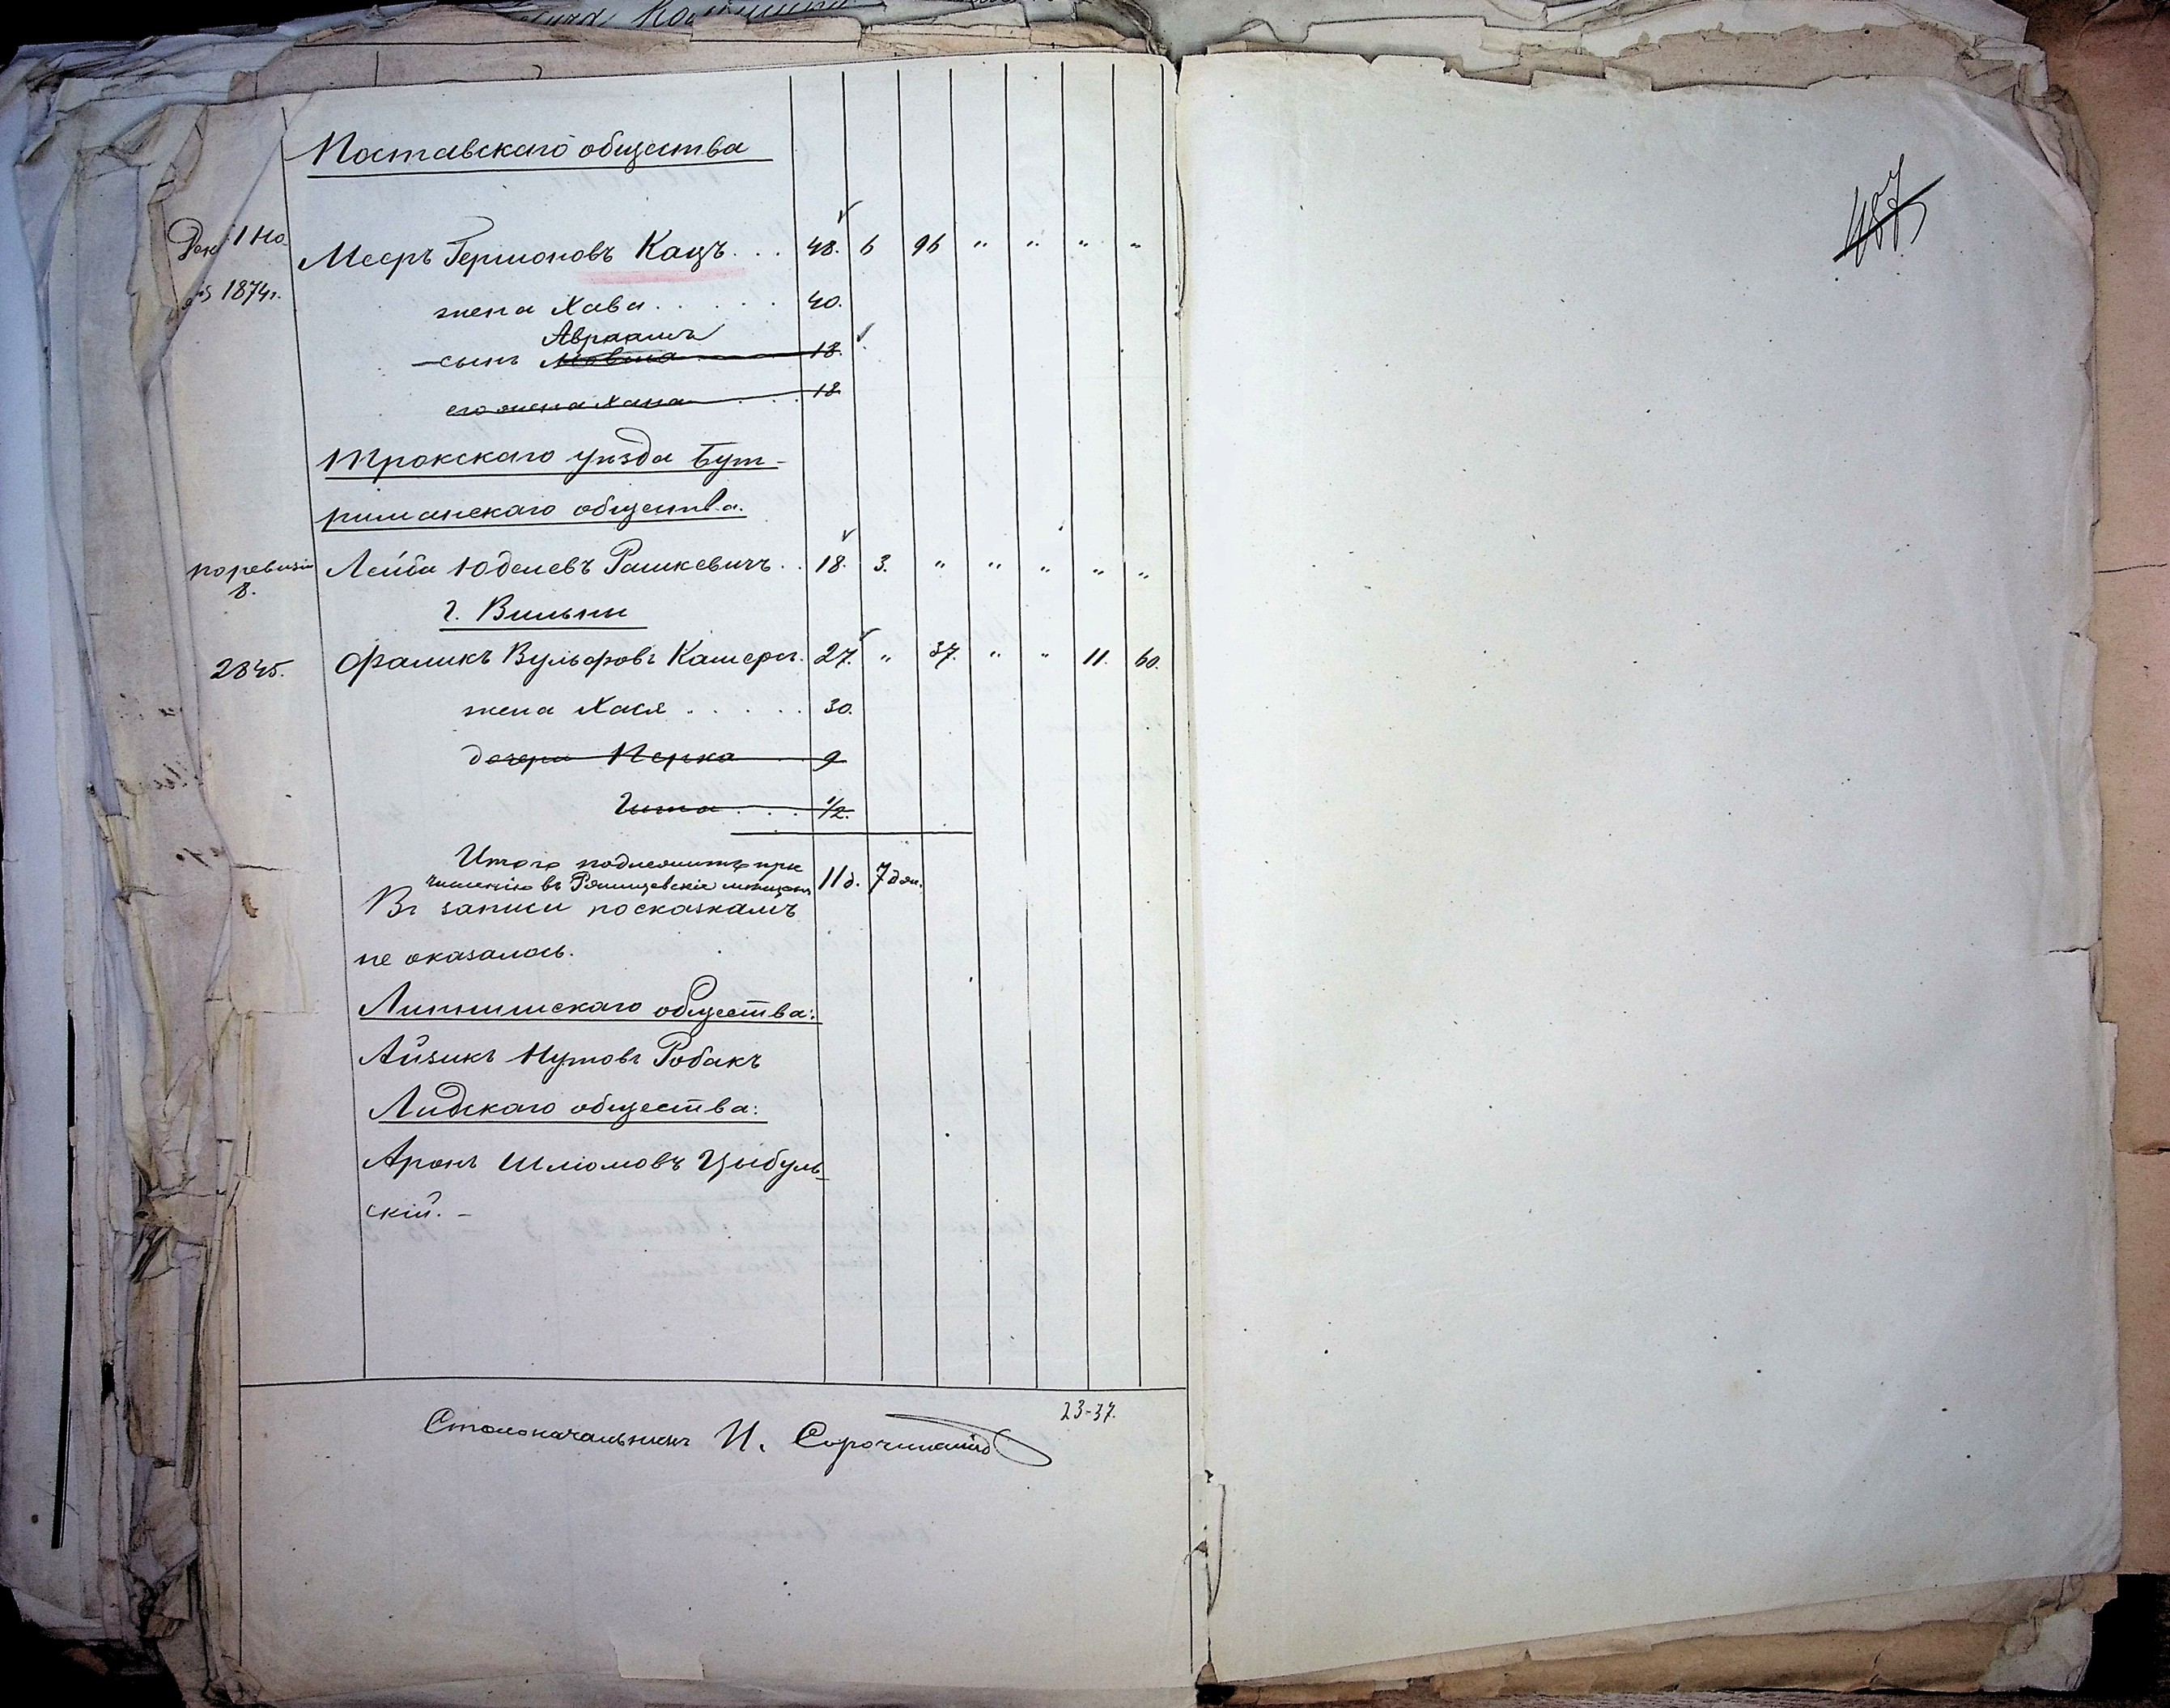 Поставскаго общества
Рек. 1 Но-
яб 1874г.
Мееръ Гершоновъ Кацъ . . . 48. 6 96 " " " "
жена Хава . . . . . . 40.
Авраамъ
сынъ Мовша 18.
его жена Хана . . . 18
Трокскаго уѣзда Бут-
риманскаго общества.
по ревизіи
8.
Лейба Юделевъ Рашкевичъ . . 18. 3. " " " " "
г. Вильни
2845. Фаликъ Вульфовъ Кашера. 27. " 37. " " 11. 60.
жена Хася . . . . . 30.
дочери Перка 9
Гита . . . . 1/2.
Итого подлежитъ при
численію въ мѣщане 11 д. 7 дѣл.
Въ записи по сказкамъ
не оказалось.
Липнишскаго общества:
Айзикъ Нутовъ Робакъ
Лидскаго общества:
Аронъ Шліомовъ Цыбуль-
скій. -
23-37.
Столоначальникъ И. Сорочинскій
487